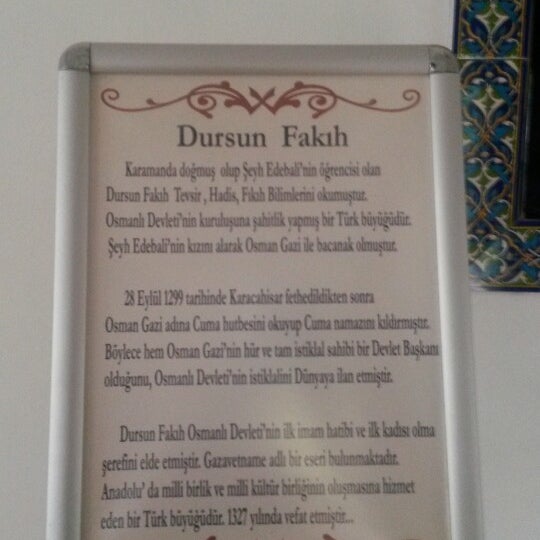 Dursun Fakıh
Karamanda doğmuş olup Şeyh Edebali'nin öğrencisi olan
Dursun Fakıh Tevsir, Hadis, Fıkıh Bilimlerini okumuştur.
Osmanlı Devleti'nin kuruluşuna şahitlik yapmış bir Türk büyüğüdür.
Şeyh Edebali'nin kızını alarak Osman Gazi ile bacanak olmuştur.
28 Eylül 1299 tarihinde Karacahisar fethedildikten sonra
Osman Gazi adına Cuma hutbesini okuyup Cuma namazını kıldırmıştır.
Böylece hem Osman Gazi'nin hür ve tam istiklal sahibi bir Devlet Başkanı
olduğunu, Osmanlı Devleti'nin istiklalini Dünyaya ilan etmiştir.
Dursun Fakıh Osmanlı Devleti'nin ilk imam hatibi ve ilk kadısı olma
şerefini elde etmiştir. Gazavetname adlı bir eseri bulunmaktadır.
Anadolu' da milli birlik ve milli kültür birliğinin oluşmasına hizmet
eden bir Türk büyüğüdür. 1327 yılında vefat etmiştir...